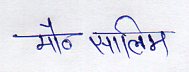 मौ० सालिम